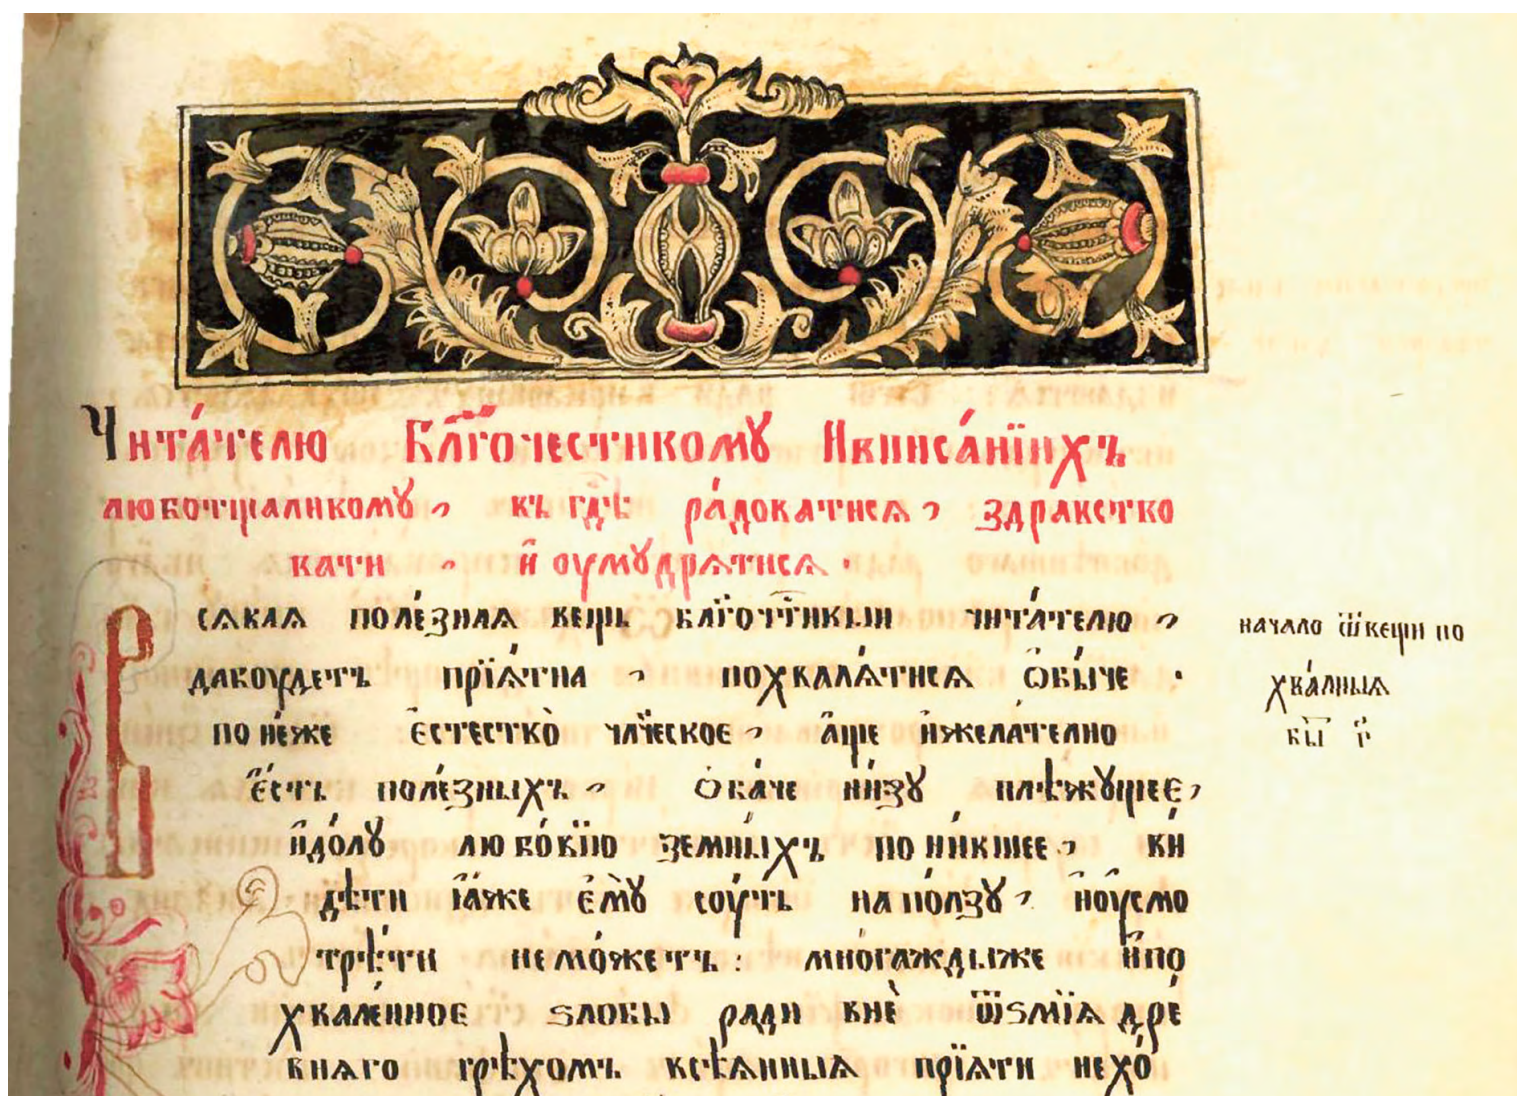 Читáтелю Бл҃гочестивому Ивписáнїихъ
люботщаливому, къ гдⷭ҇ѣ рáдоватися, здравство
вати и҆ оумꙋдрѧтися.
Всѧкаѧ полéзнаѧ вещь бл҃гочт҃ивыи читáтелю,
дабоудетъ прїѧ́тна, похвалѧ́тисѧ ѻ҆бы́че.
понéже Є҆стествò чл҃ческое, а҆́ще и҆желáтелно
є҆́сть полéзныхъ, ѻ҆бáче ни́зꙋ плѣжꙋщеє,
и҆дóлꙋ любóвїю земны́хъ пони́кшее, ви́
дѣти ꙗ҆́же є҆мꙋ̀ соýть напóлзꙋ, нѻоусмо
трѣ́ти немóжетъ: многáждыже и҆по
хвалéнное ѕлобы ради внѐ ѿѕмїѧ дрé
внѧго грѣхомъ всѣ́ѧнныѧ прїѧ́ти нехó
начало ѿвещи по
хвáлныѧ
бы р